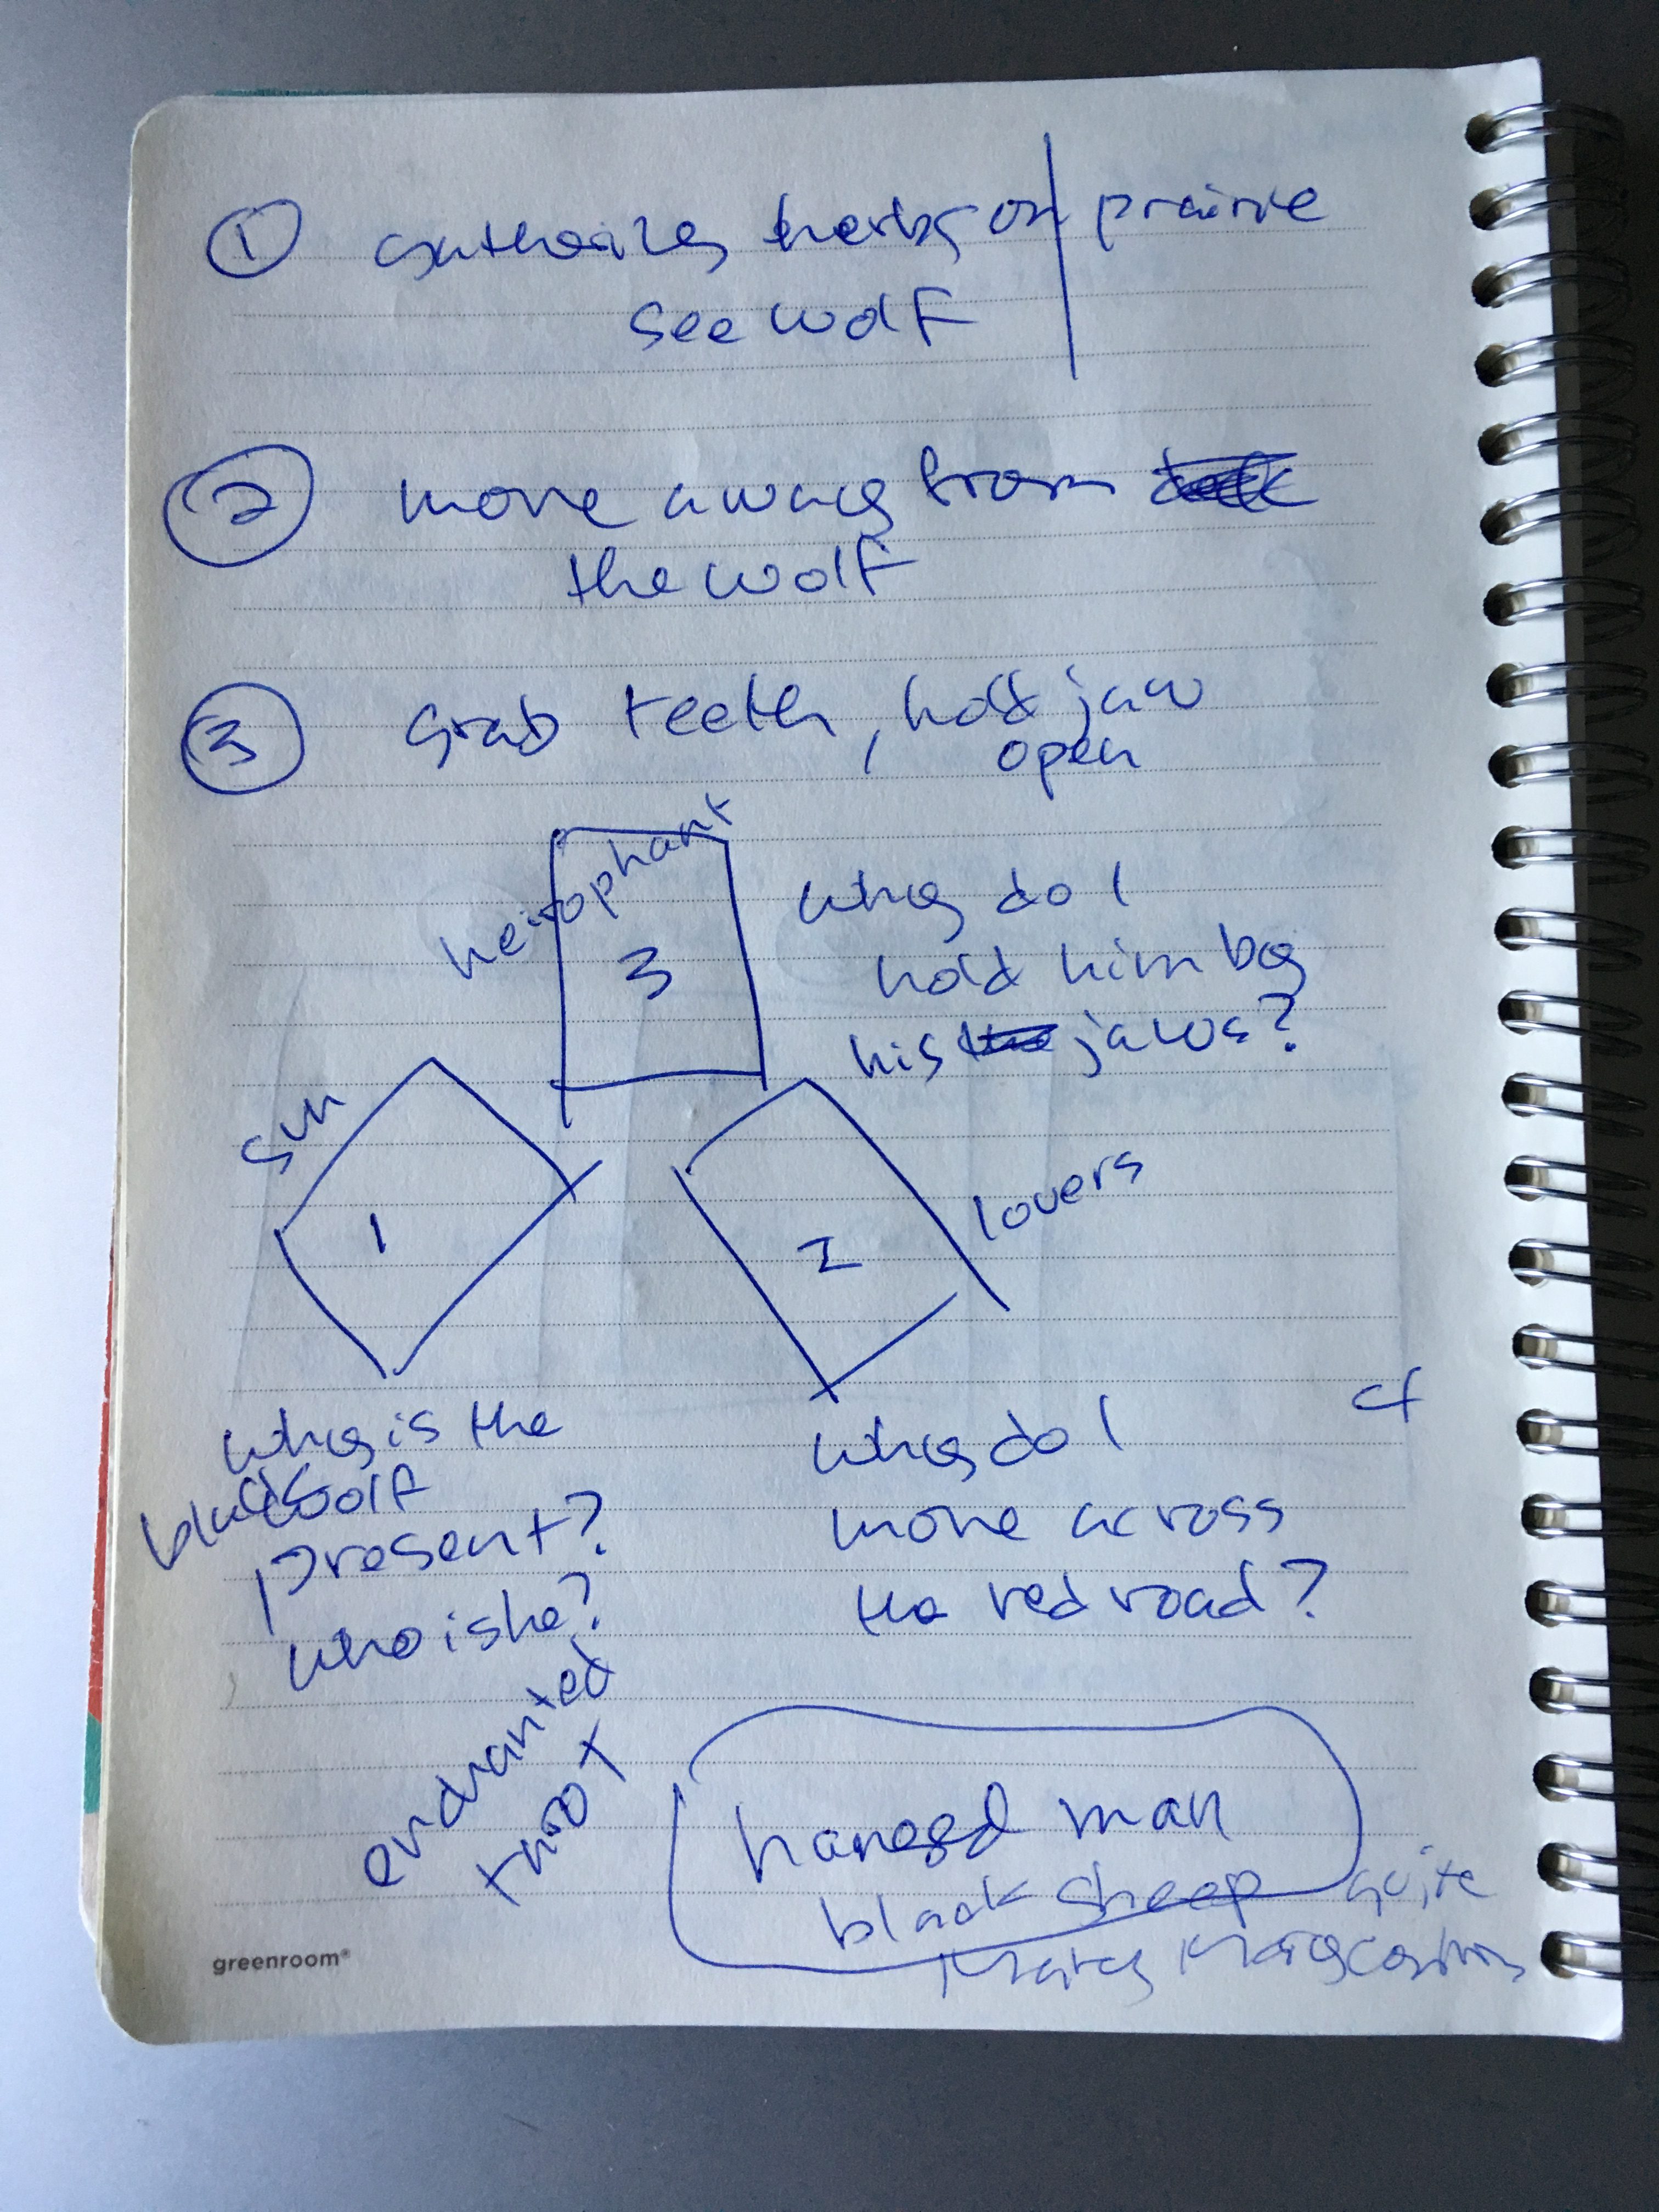 1 gathering herbs on prairie
see wolf
2 move away from
the wolf
3 Grab teeth, hold jaw
open
heirophant
3
why do I
hold him by
his jaws?
Sun
1
2
lovers
why is the
black wolf
present?
who is he?
cf
why do I
move across
the red road?
enchanted
tarot
hanged man
black sheep
quite
Mary Mary
greenroom®